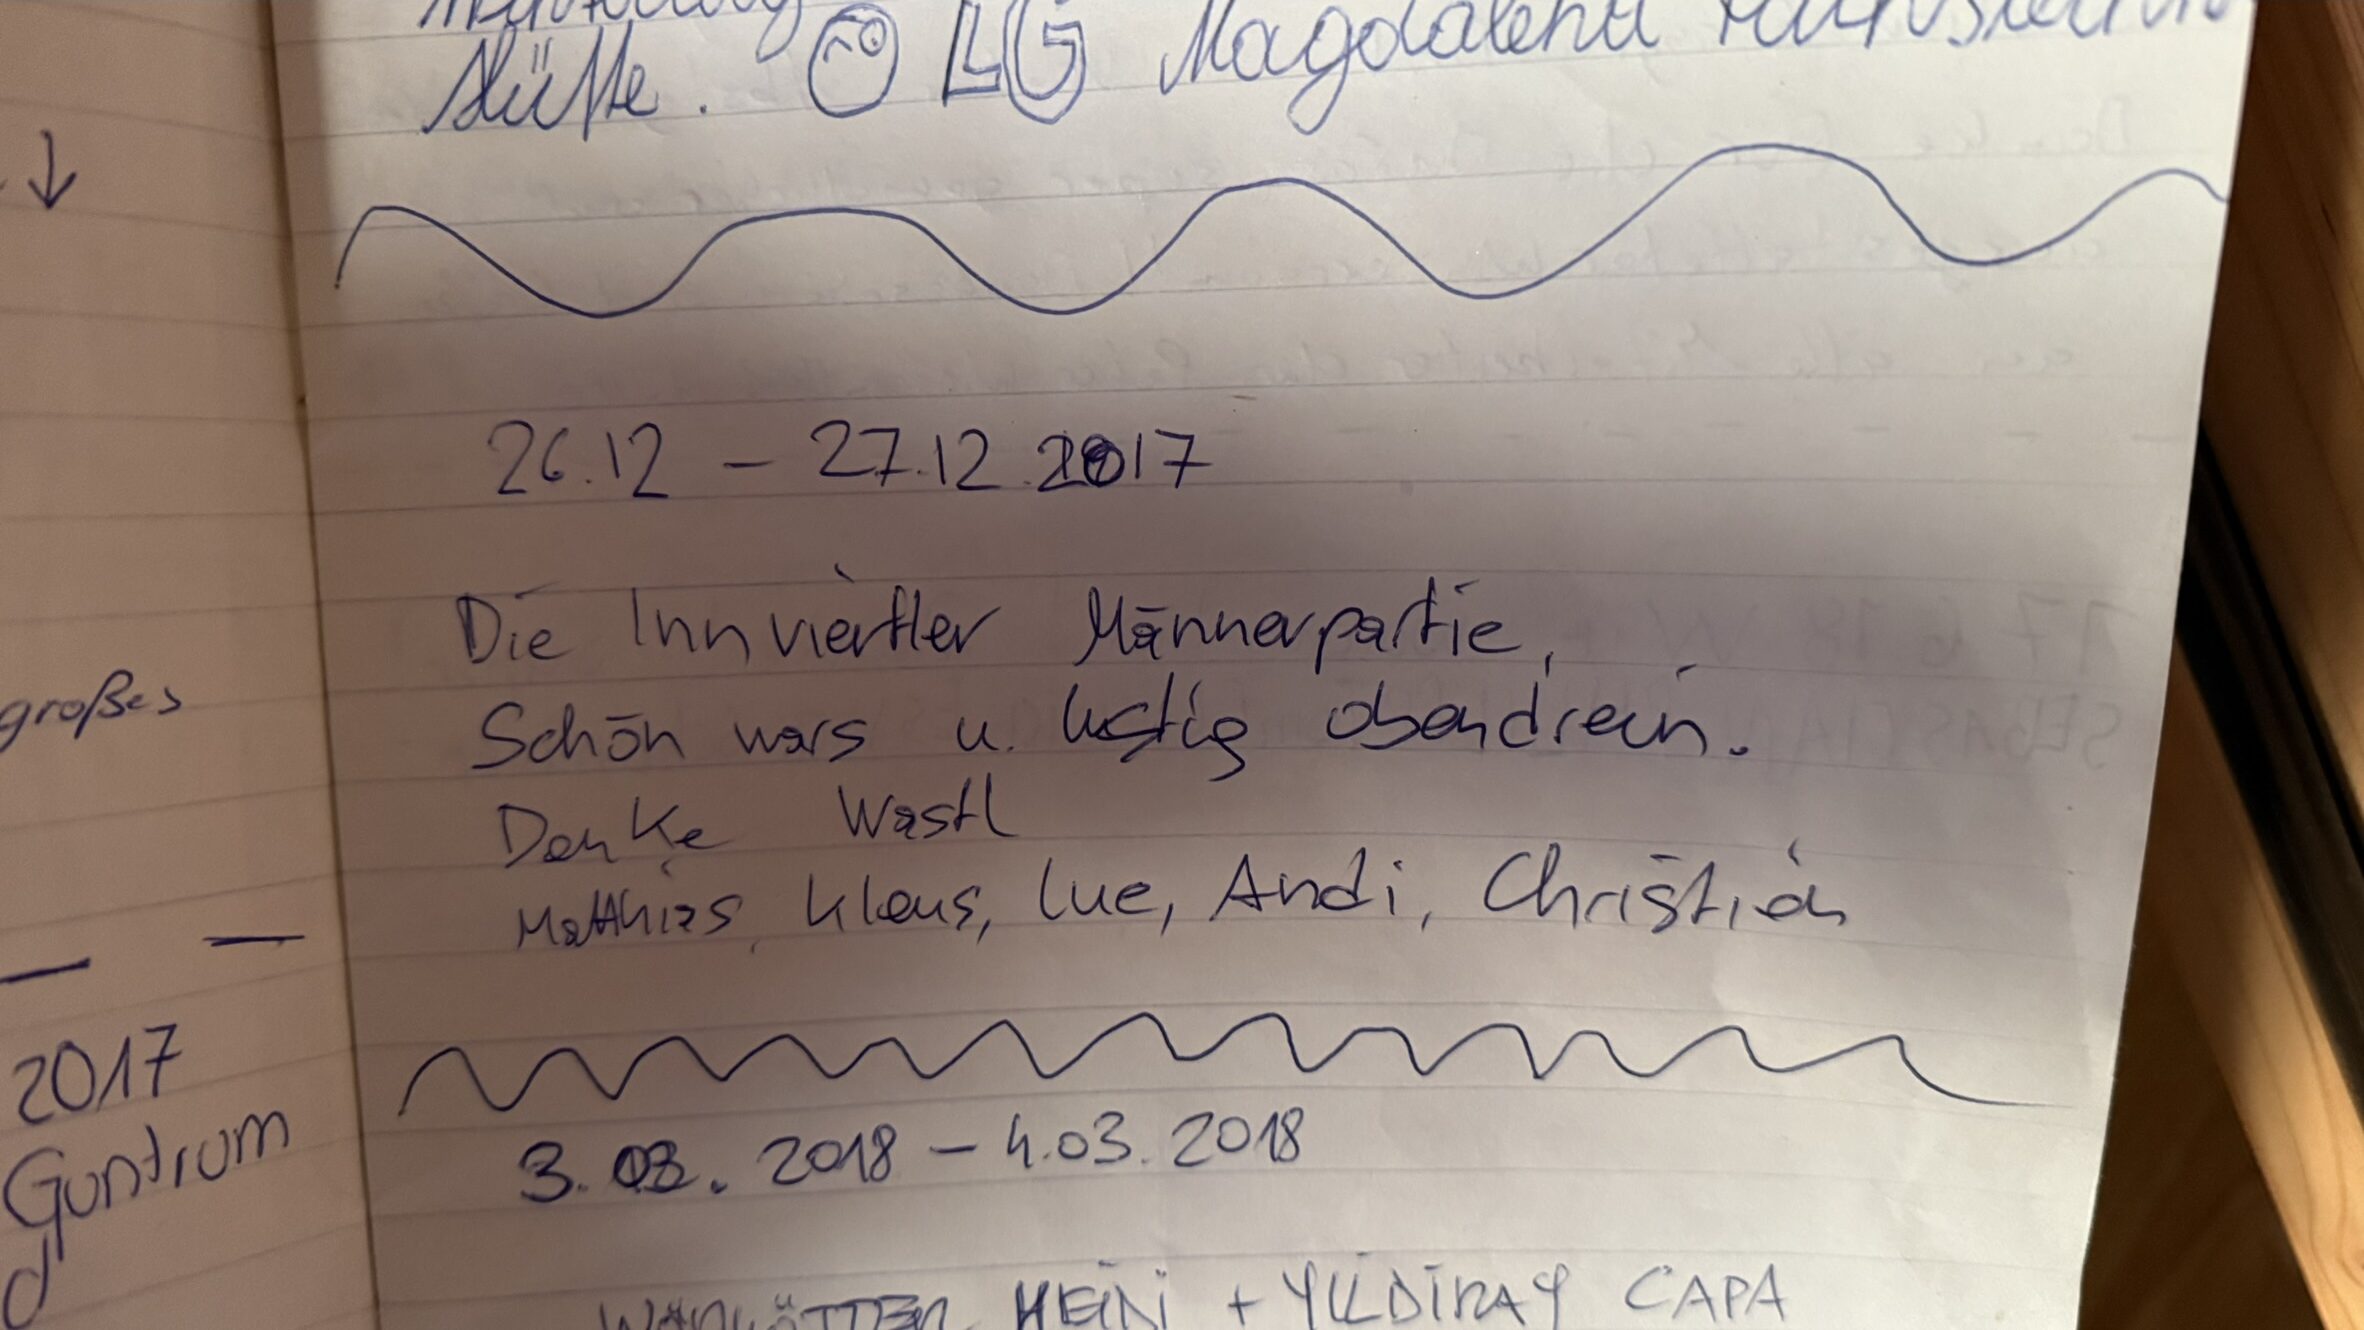 Hütte. LG Magdalena
26.12 – 27.12.2017
Die Innviertler Männerpartie,
Schön wars u. lustig obendrein.
Danke Wastl
Matthias, Klaus, Lue, Andi, Christian
3.03.2018 – 4.03.2018
HEIDI + YILDIRAY CAPA
großes
2017
Guntram